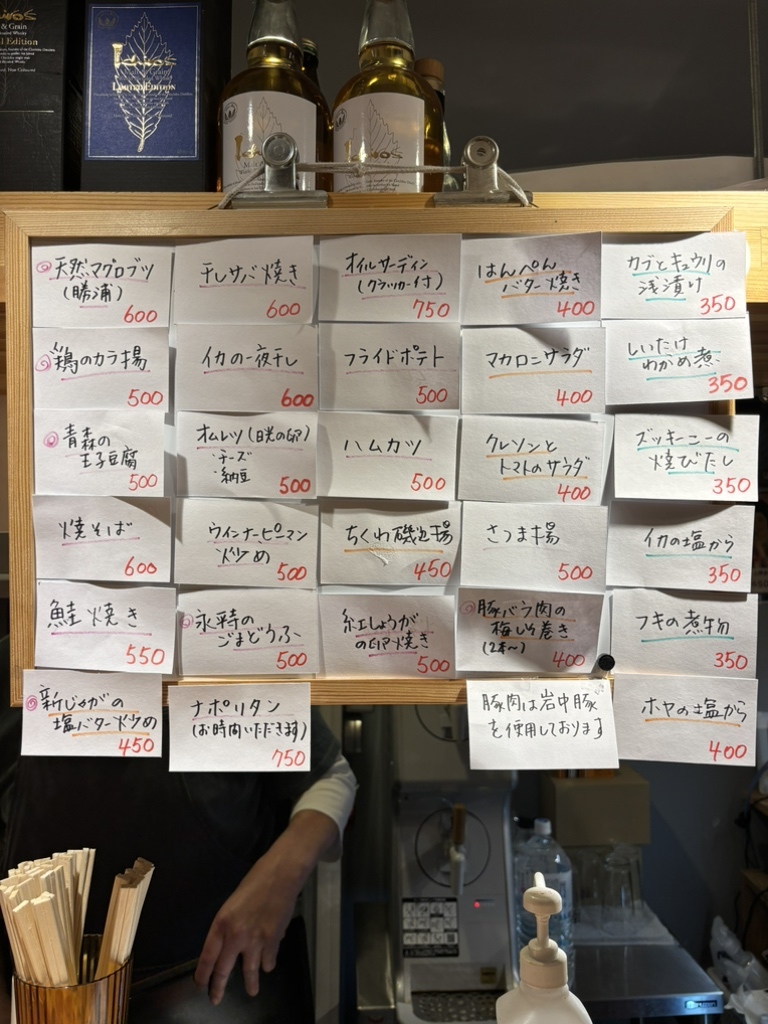 & Grain
Edition
Ichiro's
LIMITED EDITION
Ichiro's
天然マグロブツ
(勝浦)
600
干しサバ焼き
600
オイルサーディン
(クラッカー付)
750
はんぺん
バター焼き
400
カブとキュウリの
浅漬け
350
鶏のカラ揚
500
イカの一夜干し
600
フライドポテト
500
マカロニサラダ
400
しいたけ
わかめ煮
350
青森の
玉子豆腐
500
オムレツ(日光の卵)
・チーズ
・納豆
500
ハムカツ
500
クレソンと
トマトのサラダ
400
ズッキーニーの
焼びたし
350
焼そば
600
ウインナーピーマン
炒め
500
ちくわ磯辺揚
450
さつま揚
500
イカの塩から
350
鮭焼き
550
永平寺の
ごまどうふ
500
紅しょうが
の卵焼き
500
豚バラ肉の
梅しそ巻き
(2本〜)
400
フキの煮物
350
新じゃがの
塩バター炒め
450
ナポリタン
(お時間いただきます)
750
豚肉は岩中豚
を使用しております
ホヤの塩から
400